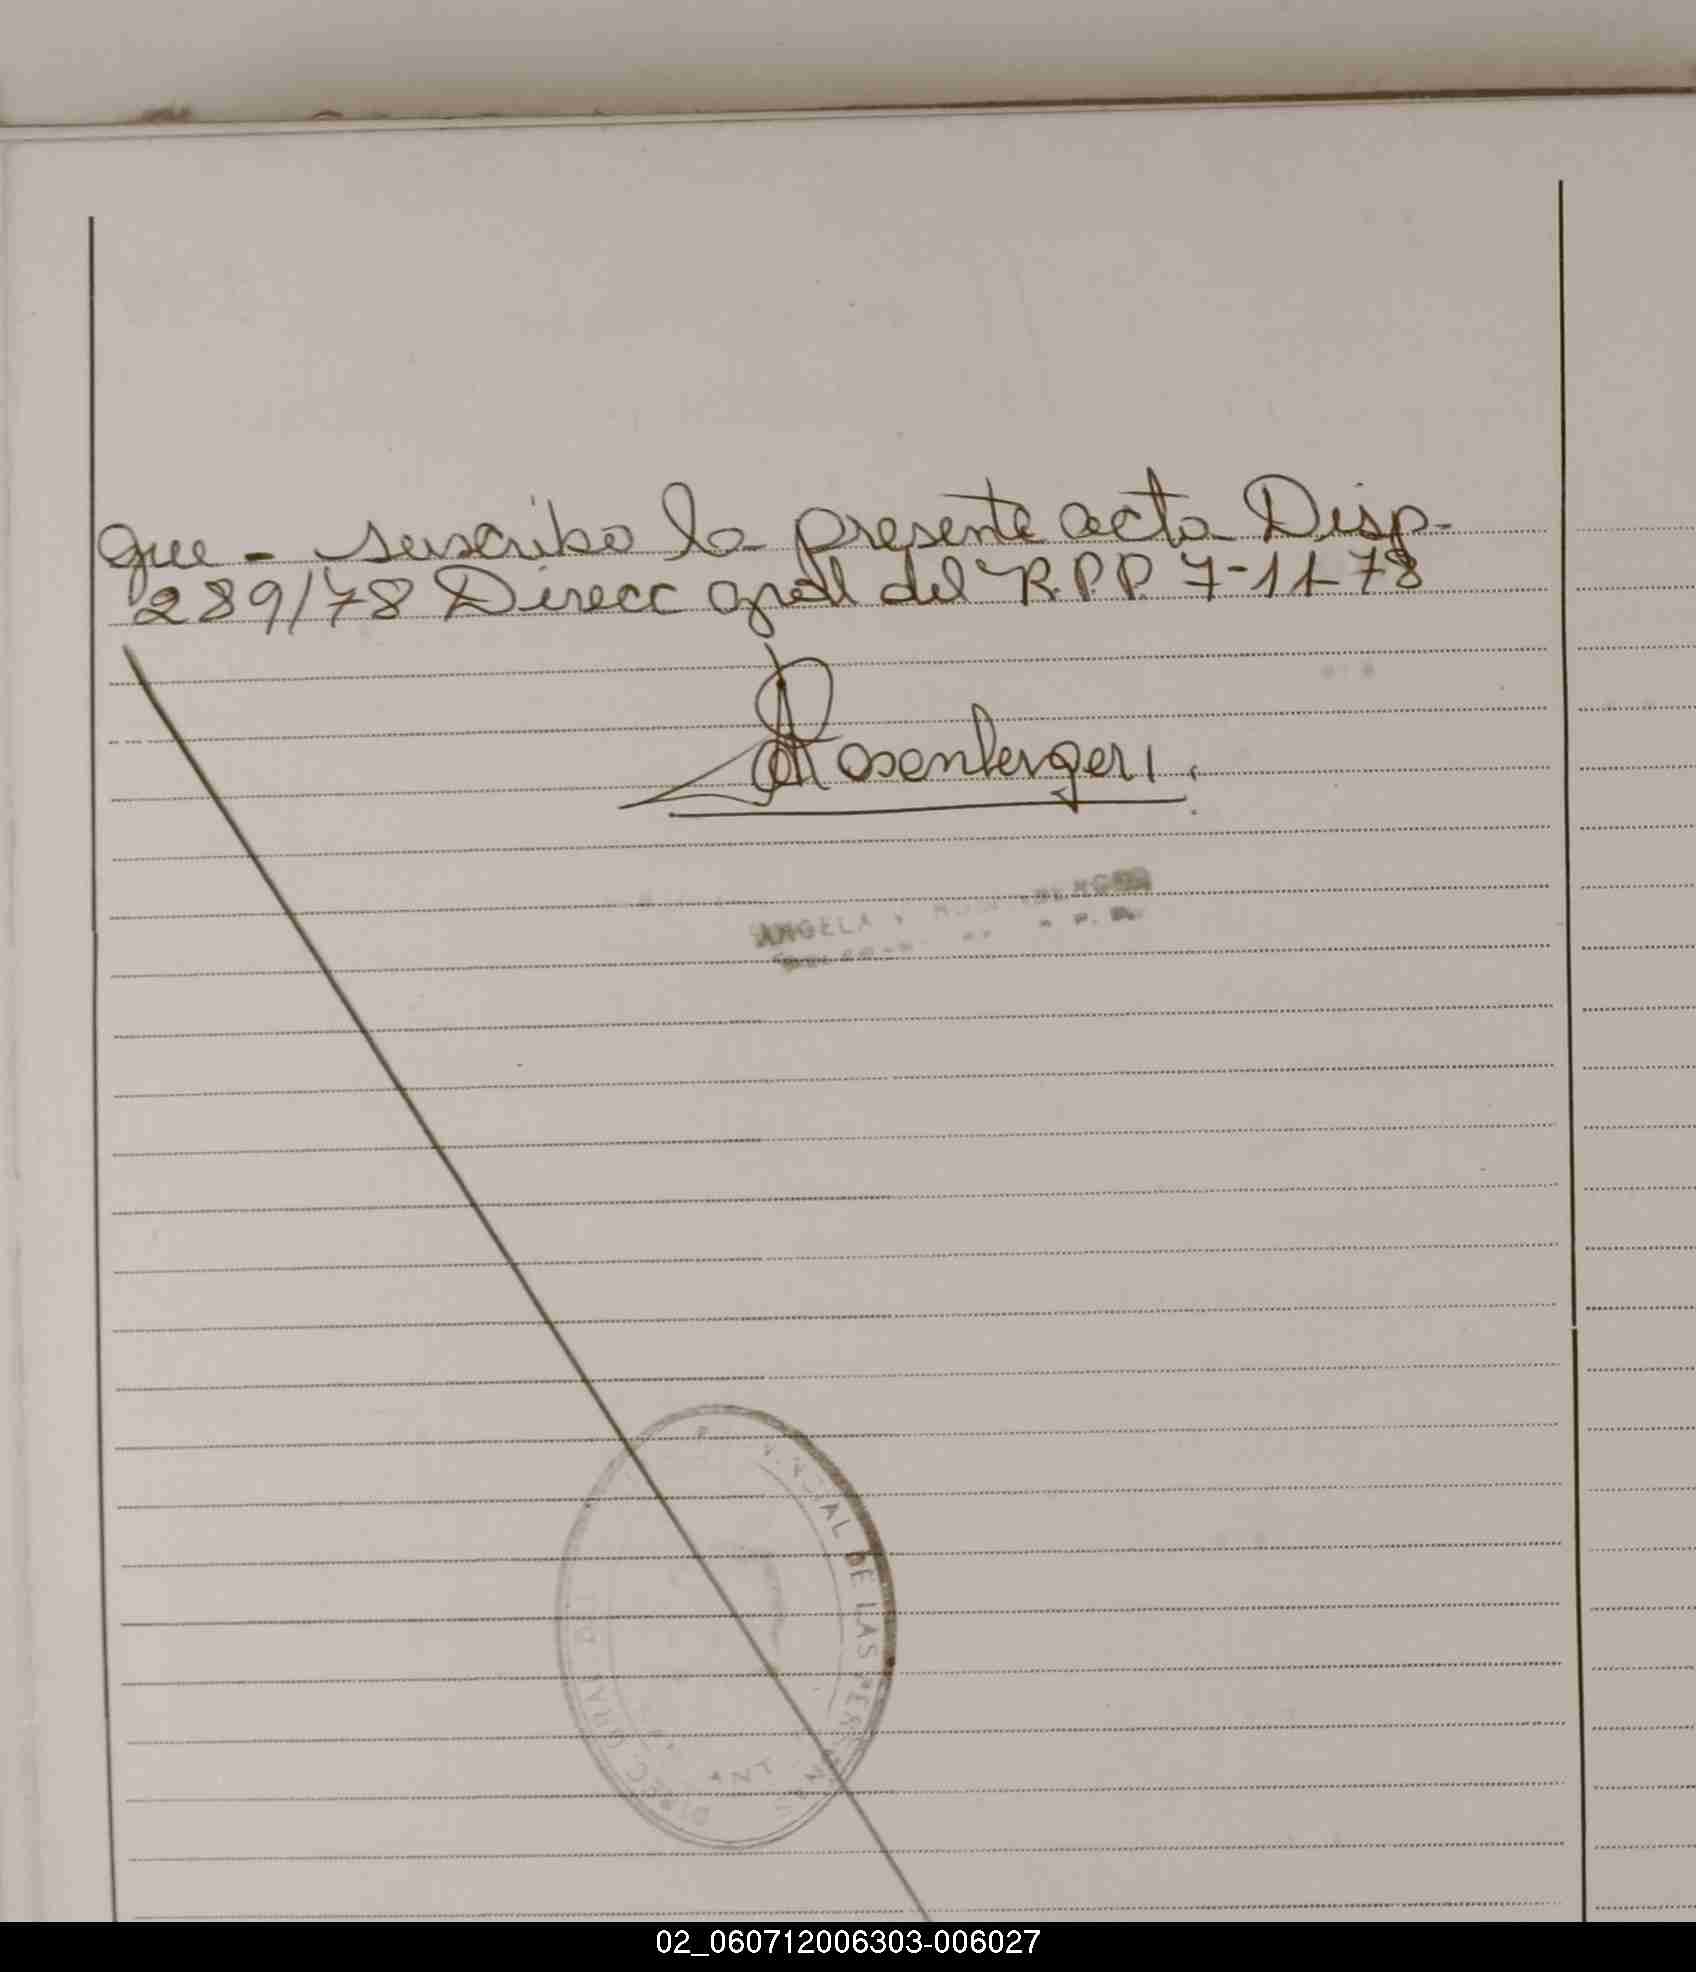 que - suscribo la presente acta Disp-
289/78 Direcc gral del R.P.P. 7-11-78
Rosenberger
ANGELA
AL DE LAS PER
DIREC GRAL
02_060712006303-006027